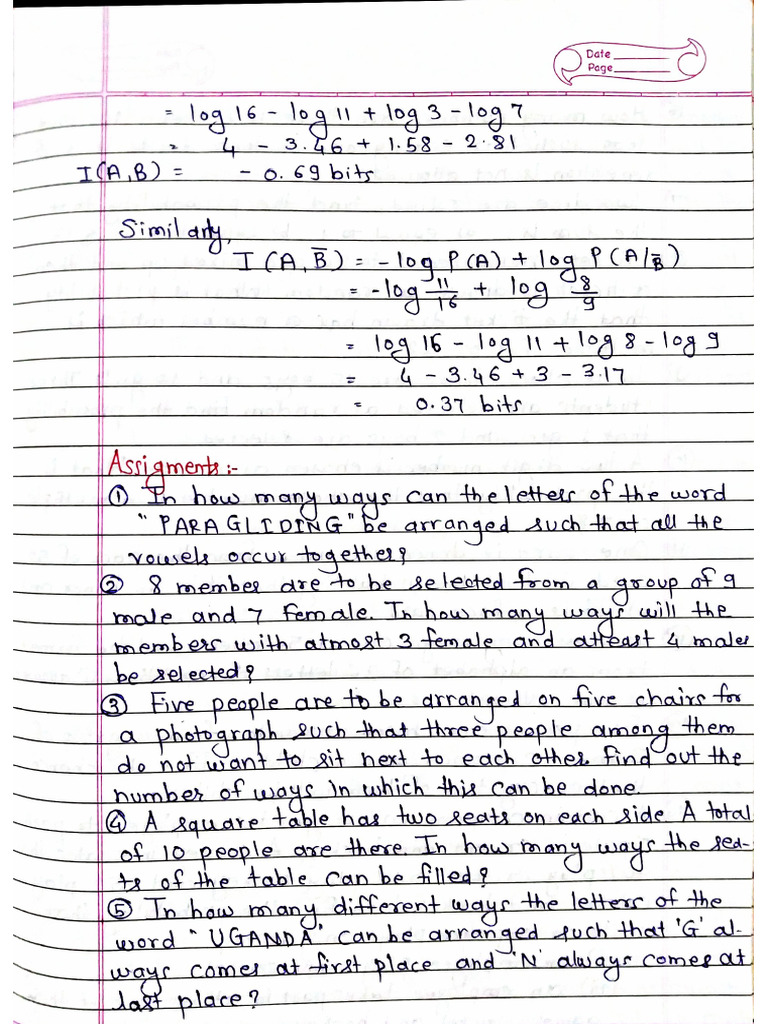 Date
Page
= log 16 - log 11 + log 3 - log 7
= 4 - 3.46 + 1.58 - 2.81
I(A,B) = - 0.69 bits
Similarly,
I (A, B̅) = -log P(A) + log P(A/B̅)
= -log 11/16 + log 8/9
= log 16 - log 11 + log 8 - log 9
= 4 - 3.46 + 3 - 3.17
= 0.37 bits
Assigments :-
① In how many ways can the letters of the word
"PARAGLIDING" be arranged such that all the
vowels occur together?
② 8 member are to be selected from a group of 9
male and 7 female. In how many ways will the
members with atmost 3 female and atleast 4 males
be selected?
③ Five people are to be arranged on five chairs for
a photograph such that three people among them
do not want to sit next to each other. Find out the
number of ways in which this can be done.
④ A square table has two seats on each side. A total
of 10 people are there. In how many ways the sea-
ts of the table can be filled?
⑤ In how many different ways the letters of the
word "UGANDA" can be arranged such that 'G' al-
ways comes at first place and 'N' always comes at
last place?